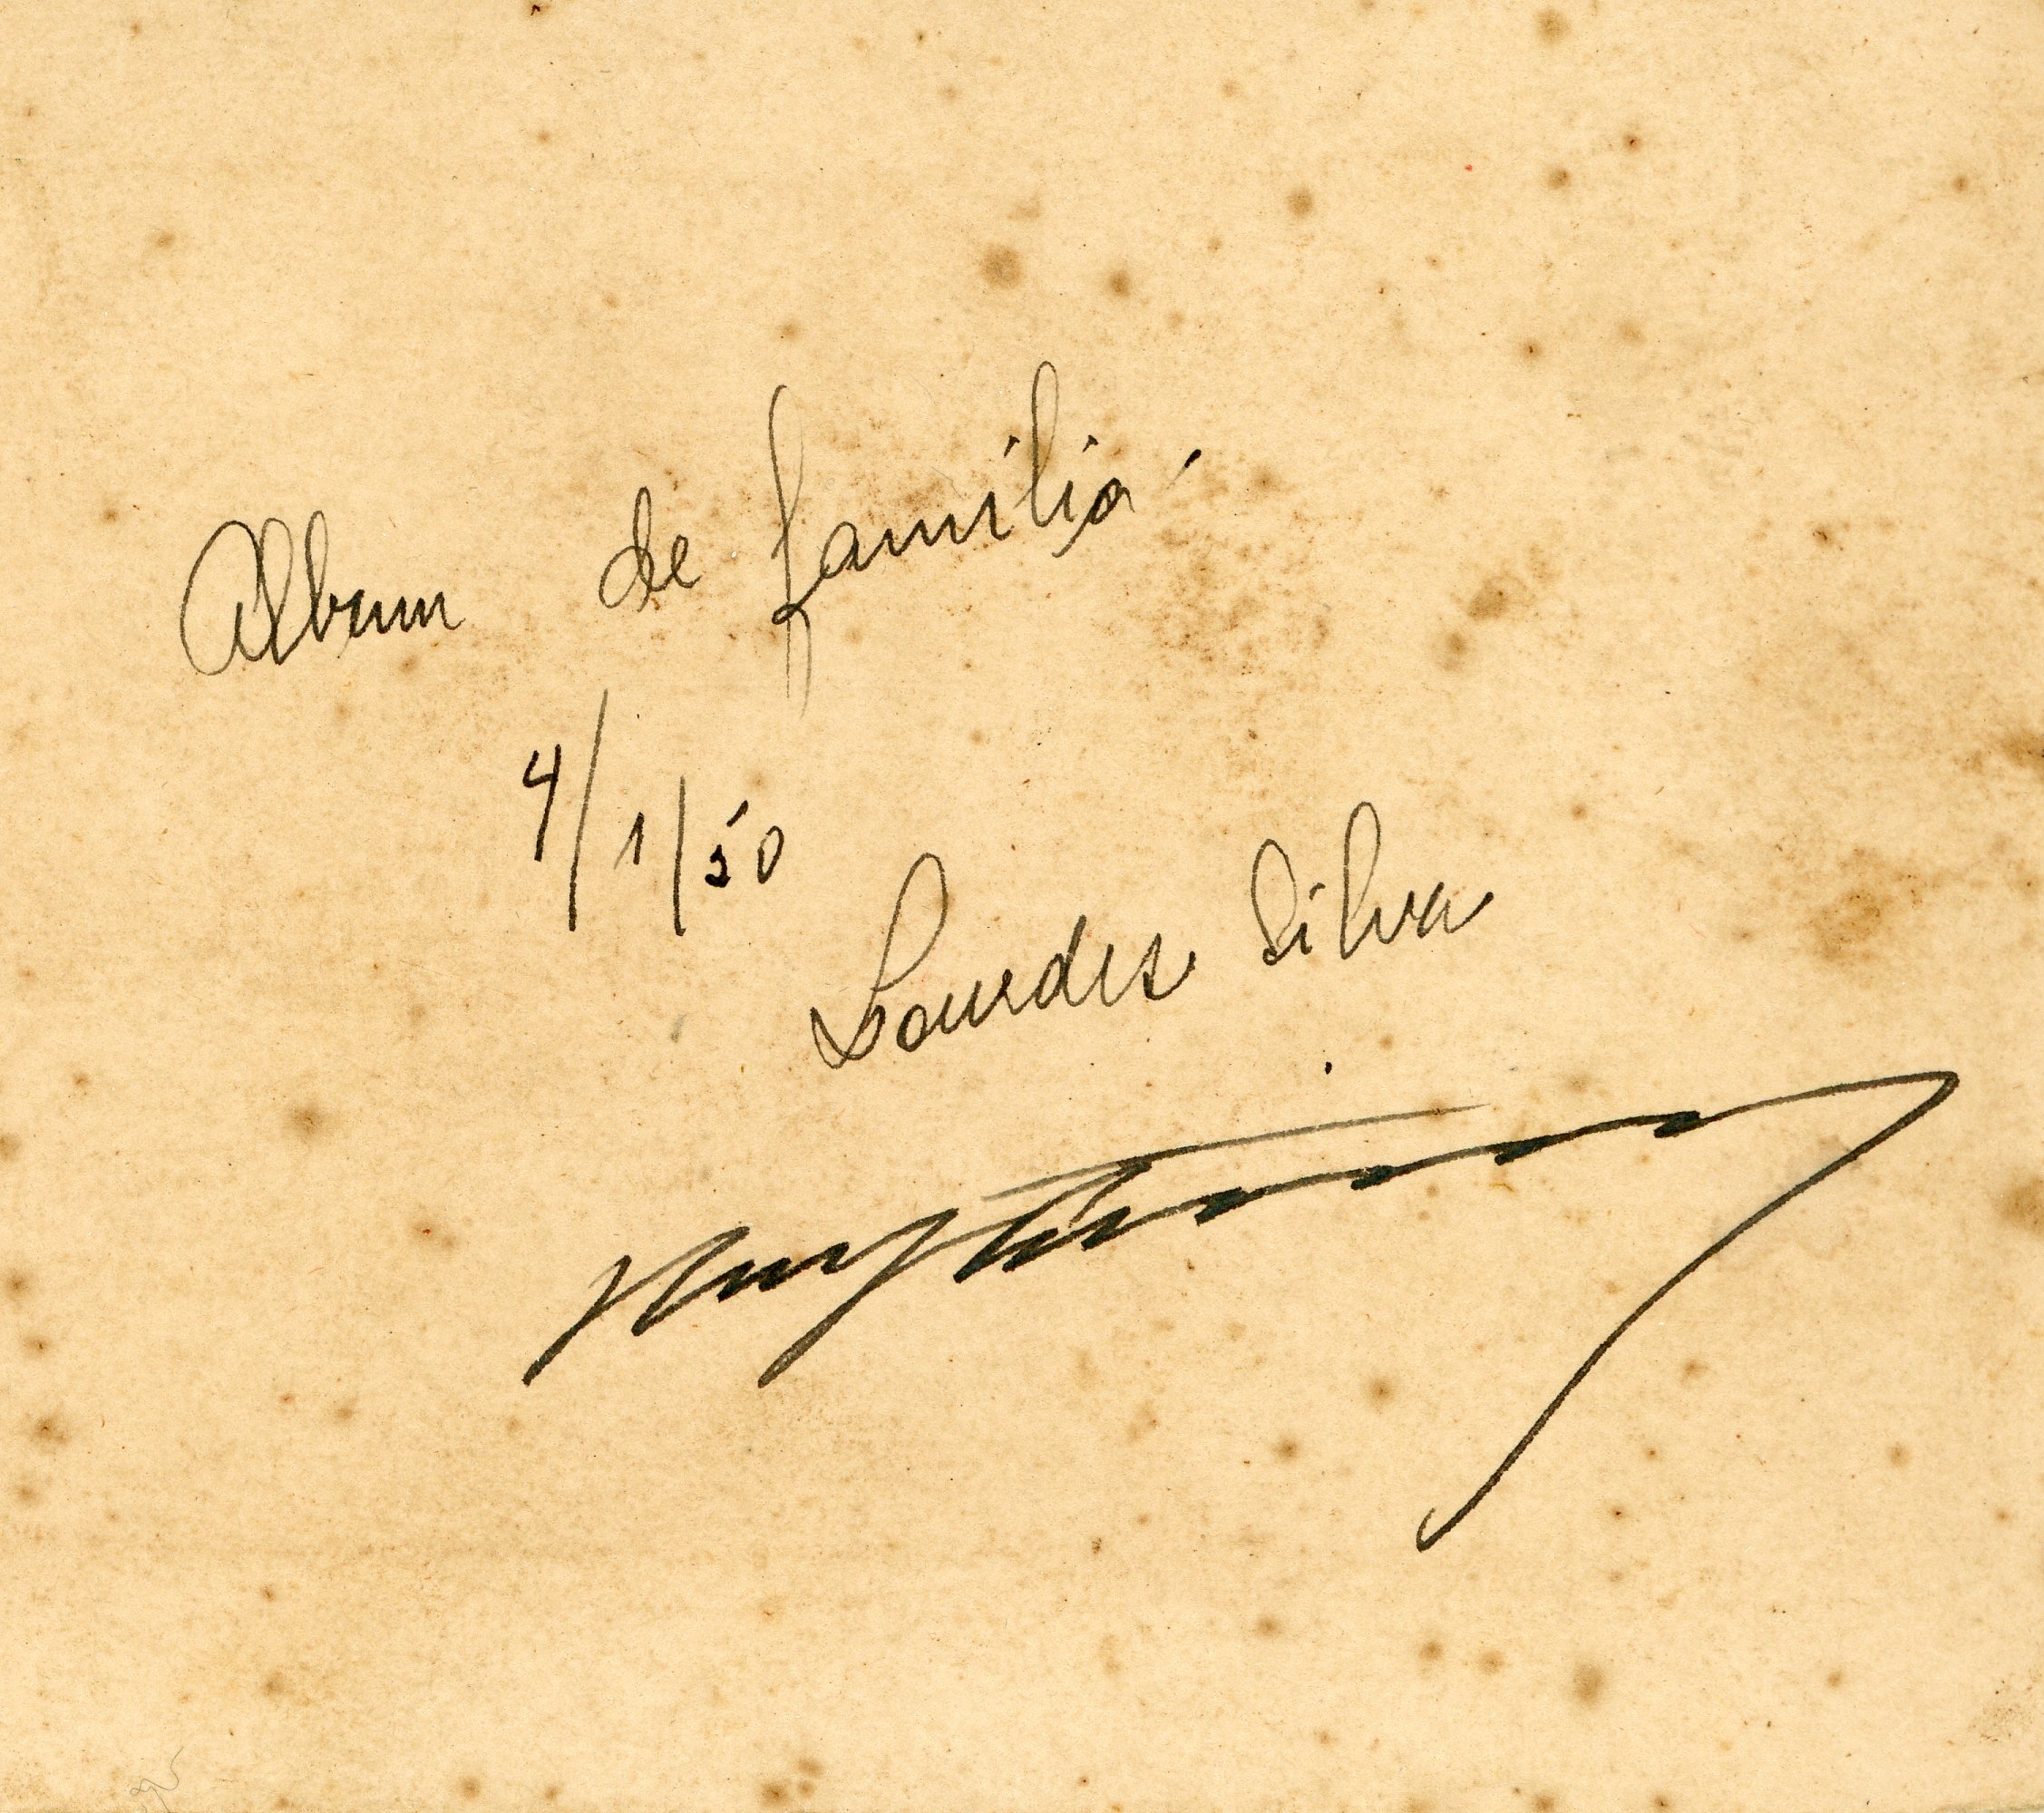 Album de familia
4/1/50
Lourdes Silva